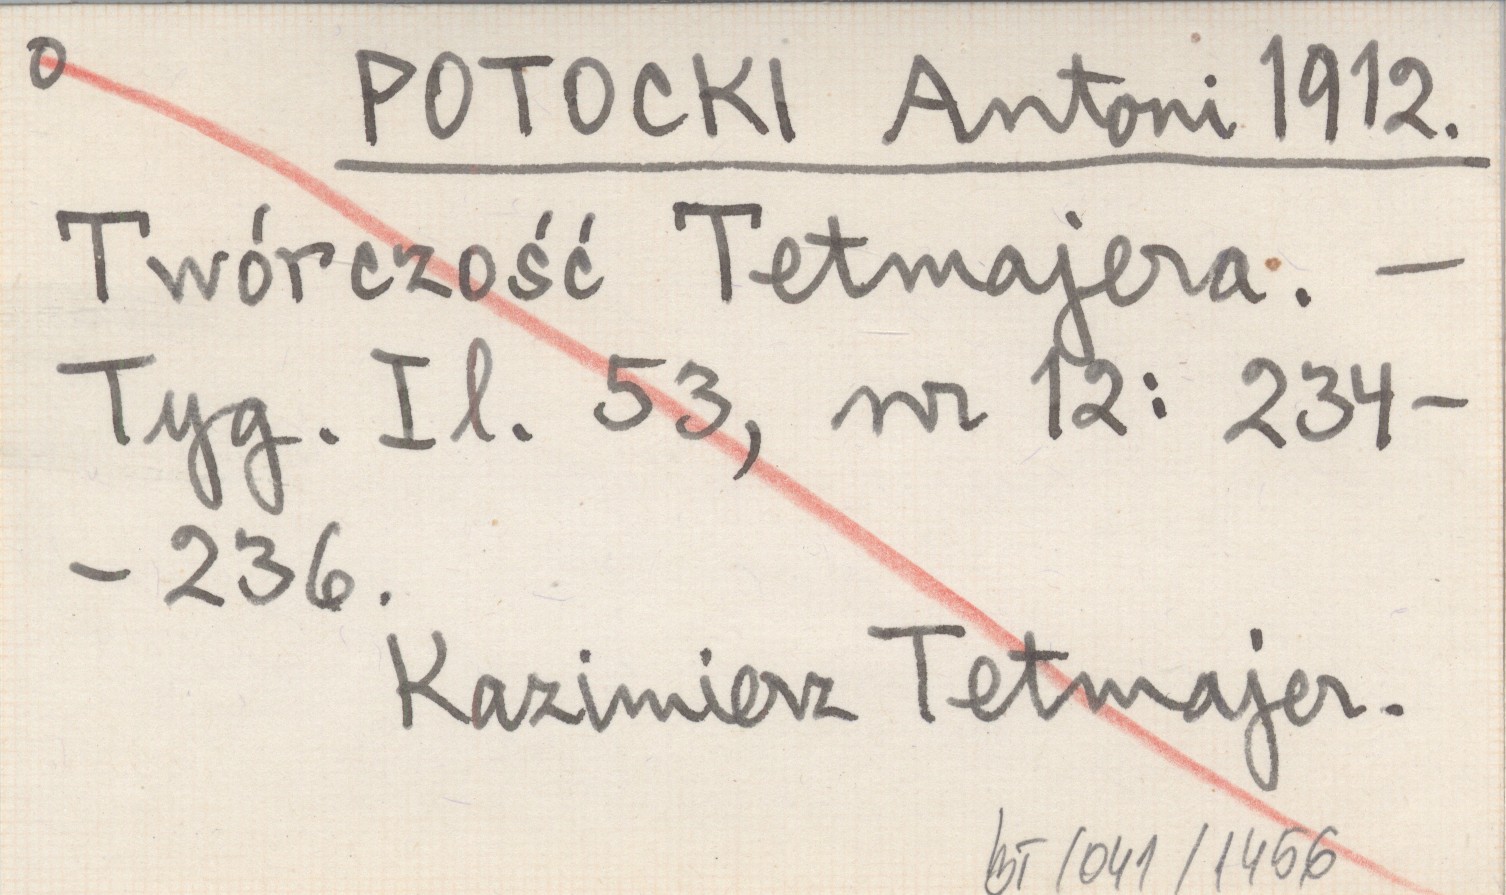 o POTOCKI Antoni 1912.
Twórczość Tetmajera. —
Tyg. Il. 53, nr 12: 234-
- 236.
Kazimierz Tetmajer.
BT/041/1456